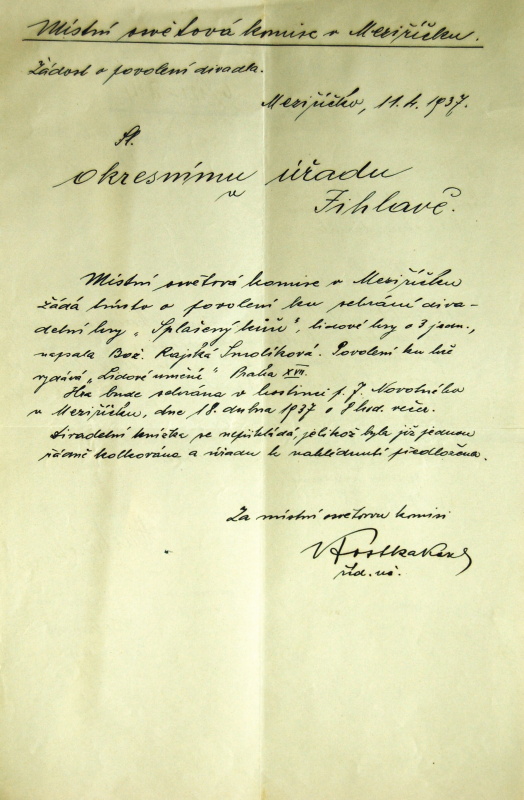 Místní osvětová komise v Meziříčku.
Žádost o povolení divadla.
Meziříčko, 11. 4. 1937.
Sl.
okresnímu úřadu
v
Jihlavě.
Místní osvětová komise v Meziříčku
žádá tímto o povolení ku sehrání diva-
delní hry „Splašený kůň", lidové hry o 3 jedn.,
napsala Bož. Rajská Smolíková. Povolení ku hře
vydává „Lidové umění" Praha XVII.
Hra bude sehrána v hostinci p. J. Novotného
v Meziříčku, dne 18. dubna 1937 o 8 hod. večer.
Divadelní knížka se nepřikládá, jelikož byla již jednou
řádně kolkována a úřadu k nahlédnutí předložena.
Za místní osvětovou komisi
Kostka Karel
říd. uč.